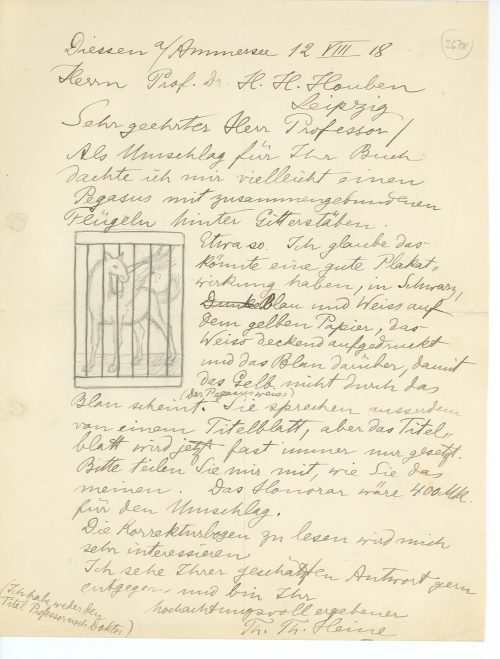 2678
Diessen a/Ammersee 12 VIII 18
Herrn Prof. Dr. H. H. Houben
Leipzig
Sehr geehrter Herr Professor/
Als Umschlag für Ihr Buch
dachte ich mir vielleicht einen
Pegasus mit zusammengebundenen
Flügeln hinter Gitterstäben.
Etwa so. Ich glaube das
könnte eine gute Plakat„
wirkung haben, in Schwarz,
Dunkelblau und Weiss auf
dem gelben Papier, das
Weiss deckend aufgedruckt
und das Blau darüber, damit
das Gelb nicht durch das
(Der Pegasus weiss)
Blau scheint. Sie sprechen ausserdem
von einem Titelblatt, aber das Titel„
blatt wird jetzt fast immer nur gesetzt.
Bitte teilen Sie mir mit, wie Sie das
meinen. Das Honorar wäre 400 Mk.
für den Umschlag.
Die Korrekturbogen zu lesen wird mich
sehr interessieren.
Ich sehe Ihrer geschätzten Antwort gern
entgegen und bin Ihr
hochachtungsvoll ergebener
Th. Th. Heine
(Ich habe weder den
Titel Professor noch Doktor)